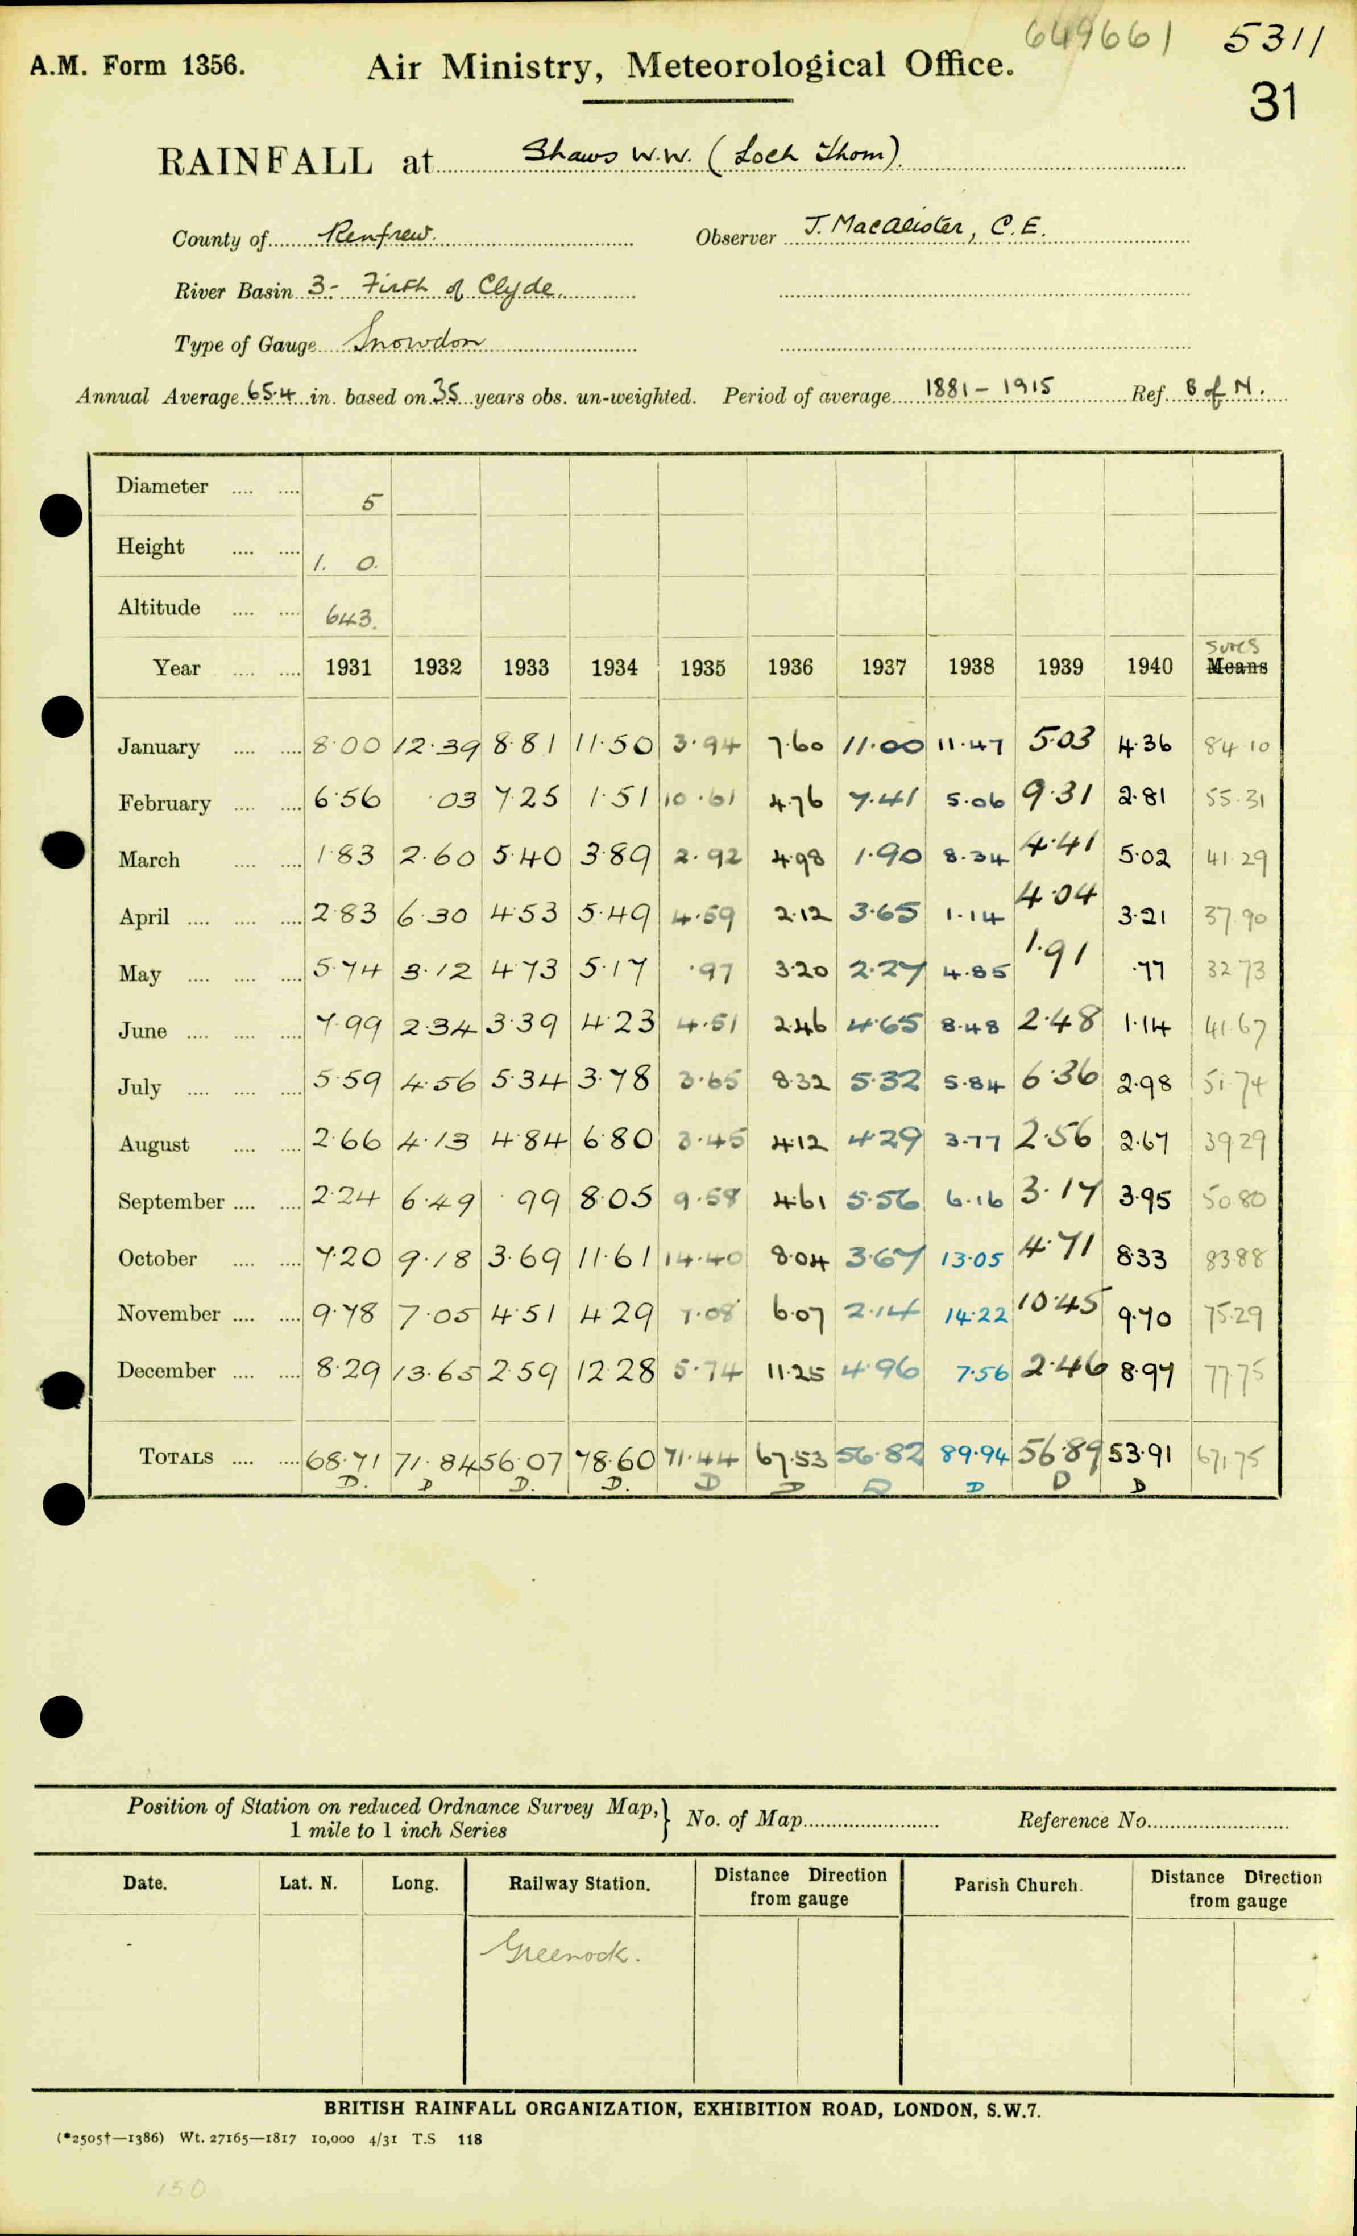 649661 5311
A.M. Form 1356. Air Ministry, Meteorological Office.
31
RAINFALL at Shaws W.W. (Loch Thom).
County of Renfrew. Observer J. Macalister, C.E.
River Basin 3- Firth of Clyde.
Type of Gauge Snowdon
Annual Average 65.4 in. based on 35 years obs. un-weighted. Period of average 1881 - 1915 Ref. B of N.
Diameter .... .... 5
Height .... .... 1. 0.
Altitude .... .... 643.
Sums
Year .... .... 1931 1932 1933 1934 1935 1936 1937 1938 1939 1940 Means
January .... .... 8.00 12.39 8.81 11.50 3.94 7.60 11.00 11.47 5.03 4.36 84.10
February .... .... 6.56 .03 7.25 1.51 10.61 4.76 7.41 5.06 9.31 2.81 55.31
March .... .... 1.83 2.60 5.40 3.89 2.92 4.98 1.90 8.34 4.41 5.02 41.29
April .... .... .... 2.83 6.30 4.53 5.49 4.59 2.12 3.65 1.14 4.04 3.21 37.90
May .... .... .... 5.74 3.12 4.73 5.17 .97 3.20 2.27 4.85 1.91 .77 32.73
June .... .... .... 7.99 2.34 3.39 4.23 4.51 2.46 4.65 8.48 2.48 1.14 41.67
July .... .... .... 5.59 4.56 5.34 3.78 3.65 8.32 5.32 5.84 6.36 2.98 51.74
August .... .... 2.66 4.13 4.84 6.80 3.45 4.12 4.29 3.77 2.56 2.67 39.29
September .... .... 2.24 6.49 .99 8.05 9.58 4.61 5.56 6.16 3.17 3.95 50.80
October .... .... 7.20 9.18 3.69 11.61 14.40 8.04 3.67 13.05 4.71 8.33 83.88
November .... .... 9.78 7.05 4.51 4.29 7.08 6.07 2.14 14.22 10.45 9.70 75.29
December .... .... 8.29 13.65 2.59 12.28 5.74 11.25 4.96 7.56 2.46 8.97 77.75
TOTALS .... .... 68.71 71.84 56.07 78.60 71.44 67.53 56.82 89.94 56.89 53.91 671.75
D. D D. D. D D D D D D
Position of Station on reduced Ordnance Survey Map, } No. of Map Reference No.
1 mile to 1 inch Series
Date. Lat. N. Long. Railway Station. Distance Direction from gauge Parish Church. Distance Direction from gauge
Greenock.
BRITISH RAINFALL ORGANIZATION, EXHIBITION ROAD, LONDON, S.W.7.
(*2505†—1386) Wt. 27165—1817 10,000 4/31 T.S 118
150